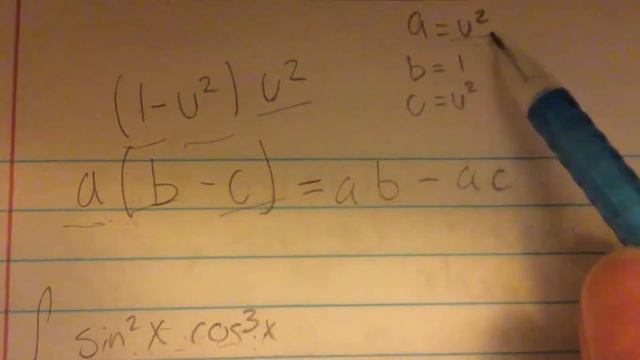 a = u²
(1-u²) u²
b = 1
c = u²
a(b-c) = ab - ac
∫ sin²x cos³x